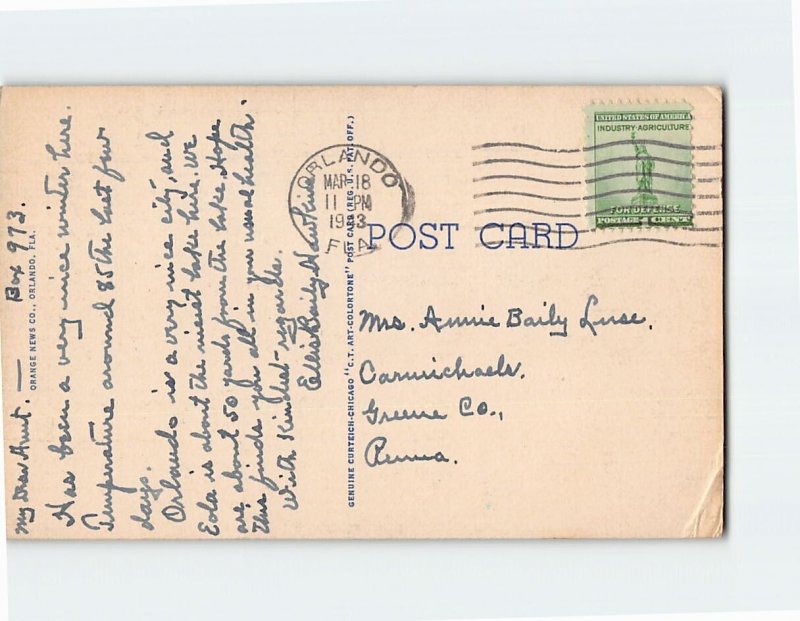 Box 973.
My Dear Aunt. —
Has been a very nice winter here.
Temperature around 85 the last few
days.
Orlando is a very nice city, and
Eola is about the nicest lake here. We
are about 50 yards from the lake. Hope
this finds you all in your usual health.
With Kindest regards.
Ellis Baily Hawkins
ORANGE NEWS CO., ORLANDO, FLA.
GENUINE CURTEICH-CHICAGO "C.T. ART-COLORTONE" POST CARD (REG. U.S. PAT. OFF.)
ORLANDO
MAR 18
11 PM
1943
FLA
UNITED STATES OF AMERICA
INDUSTRY · AGRICULTURE
FOR DEFENSE
POSTAGE 1 CENT
POST CARD
Mrs. Annie Baily Luse,
Carmichaels,
Greene Co.,
Penna.